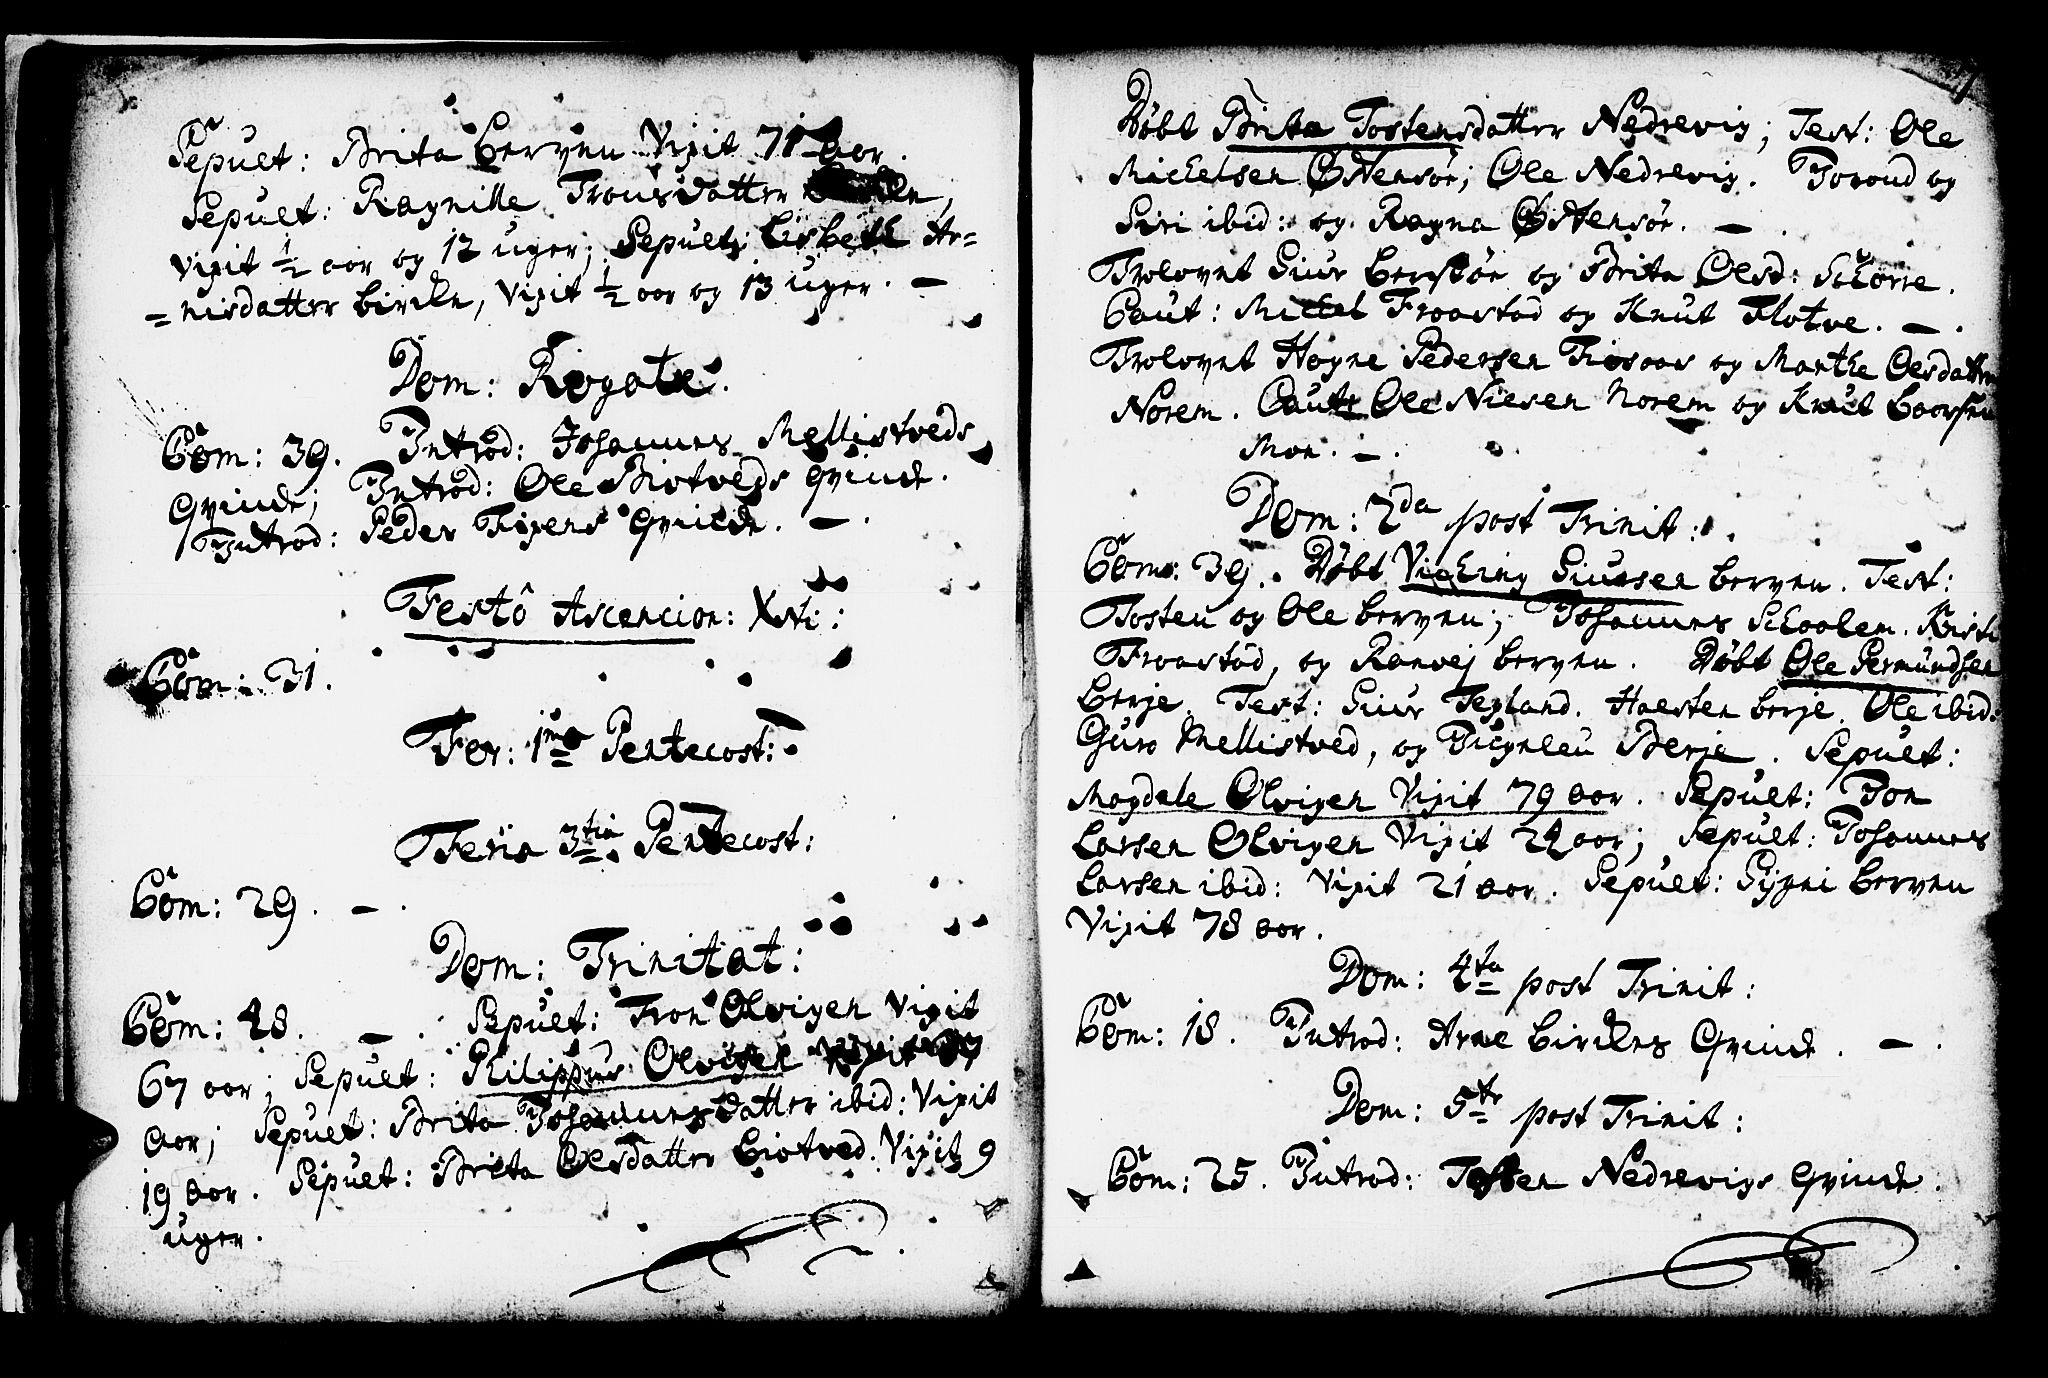 Sepult: Brita Berven Vixit 71 aor.
Sepult: Ragnille Tronsdatter
Vixit ½ aor og 12 uger; Sepult: Lisbeth Ar=
=nisdatter Birkln, Vixit ½ aor og 13 uger. —
Dom: Rogate.
Com: 39. Introd: Johannes Mellistveds
Qvinde; Introd: Ole Biotveds Qvinde.
Introd: Peder Tixens Qvinde. —.
Festô Ascencion: Xsti:
Com: 31.
Fer: 1ma Pentecost:
Feria 3tia Pentecost:
Com: 29. —.
Dom: Trinitat:
Com: 48. —. Sepult: Tron Olvigen Vixit
67 aor; Sepult: Philippus Olvigen Vixit
aor; Sepult: Brita Johannesdatter ibid: Vixit
19 aor. Sepult: Brita Olsdatter Biotved. Vixit 9
uger.
7
Døbt Brita Tostensdatter Nedrevig; Test: Ole
Michelsen Østensøe; Ole Nedrevig. Joroud og
Siri ibid: og Ragna Østensøe. —.
Trolovet Siur Berstøe og Brita Olsd: Skorre.
Caut: Mickel Froastad og Knut Flotve. —.
Trolovet Hogne Pedersen Tiosaas og Marthe Olsdatter
Norem. Caut: Ole Nilsen Norem og Knut Baarsen
Moe. —.
Dom: 2da post Trinit:
Com: 39. Døbt Vicking Siursen Berven. Test:
Tosten og Ole Berven; Johannes Schaalem. Kristi
Froastad, og Ranvej Berven. Døbt Ole Germundsen
Berje. Test: Siur Tegland. Haesten Berje. Ole ibid:
Guro Mellistved, og Berje. Sepult:
Magdale Olvigen Vixit 79 aor. Sepult: Jon
Larsen Olvigen Vixit 24 aor; Sepult: Johannes
Larsen ibid: Vixit 21 aor. Sepult: Sygni Berven
Vixit 78 aor.
Dom: 4ta post Trinit:
Com: 18. Introd: Arne Birkes Qvinde. —.
Dom: 5te post Trinit:
Com: 25. Introd: Tosten Nedrevigs Qvinde.